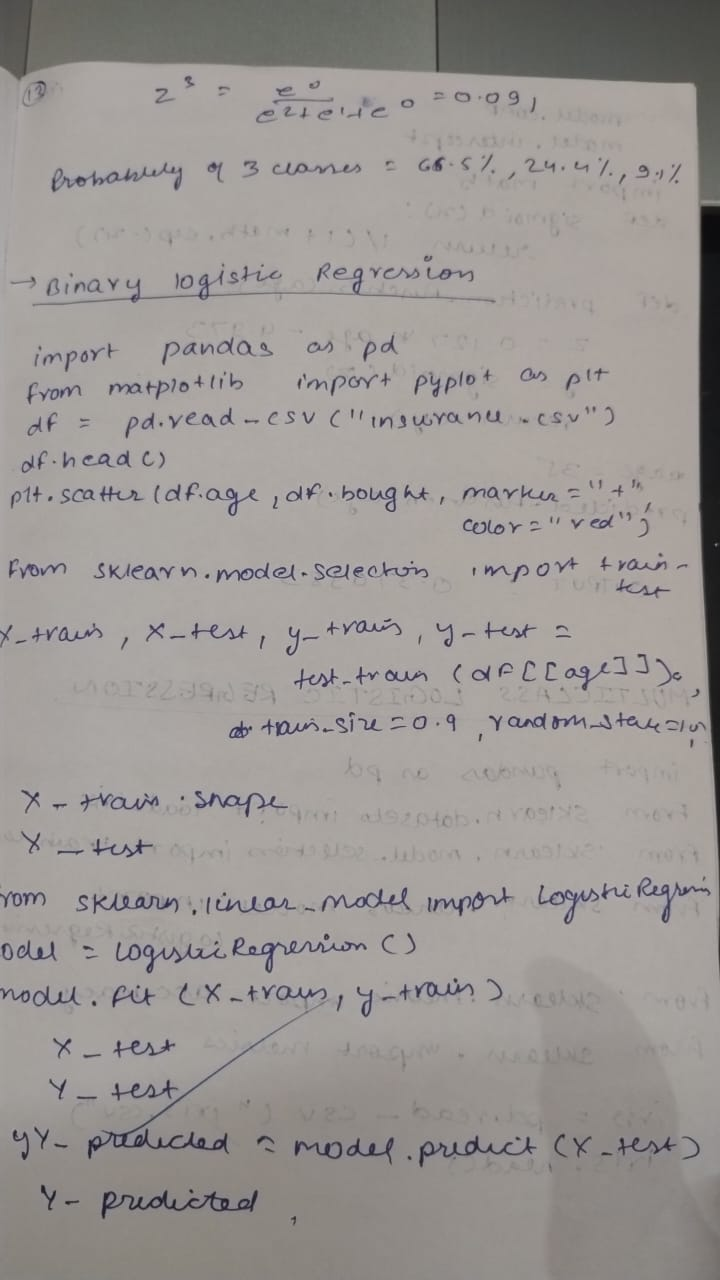 13
z³ = e⁰ / e²+e¹+e⁰ = 0.091
Probability of 3 classes = 66.5%, 24.4%, 9.1%
→ Binary logistic Regression
import pandas as pd
from matplotlib import pyplot as plt
df = pd.read_csv ("insurance.csv")
df.head()
plt.scatter (df.age, df.bought, marker="+",
color="red");
From sklearn.model.selection import train-
test
X_train, X_test, y_train, y_test =
test_train (df[[age]]),
train_size=0.9, random_state=1
X_train.shape
X_test
rom sklearn.linear_model import Logistic Regression
odel = Logistic Regression ()
model.fit (X_train, y_train)
X_test
Y_test
yY-predicted = model.predict (X_test)
Y-predicted,